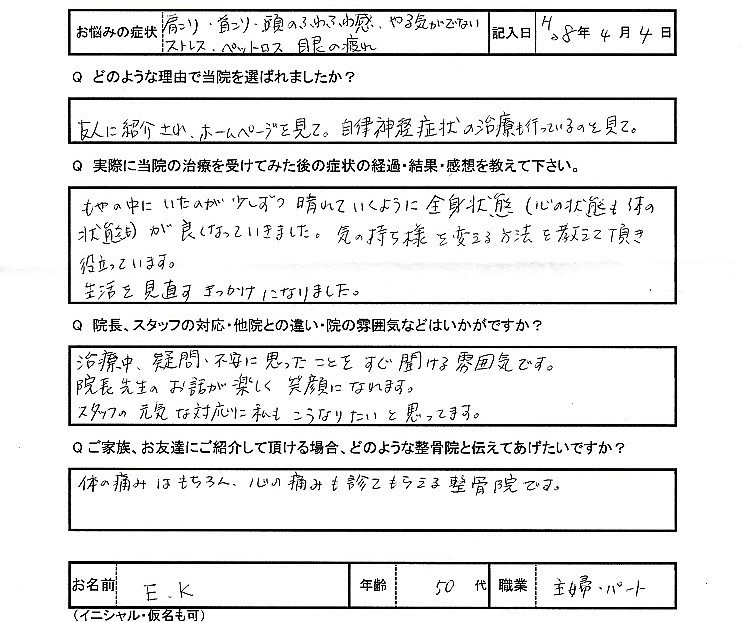 お悩みの症状 肩こり・首こり・頭のふわふわ感、やる気がでない
ストレス、ペットロス 目の疲れ
記入日 H28年4月4日
Q どのような理由で当院を選ばれましたか？
友人に紹介され、ホームページを見て。自律神経症状の治療も行っているのを見て。
Q 実際に当院の治療を受けてみた後の症状の経過・結果・感想を教えて下さい。
もやの中にいたのが少しずつ晴れていくように全身状態（心の状態も体の
状態も）が良くなっていきました。気の持ち様を変える方法を教えて頂き
役立っています。
生活を見直すきっかけになりました。
Q 院長、スタッフの対応・他院との違い・院の雰囲気などはいかがですか？
治療中、疑問・不安に思ったことをすぐ聞ける雰囲気です。
院長先生のお話が楽しく笑顔になれます。
スタッフの元気な対応に私もこうなりたいと思ってます。
Q ご家族、お友達にご紹介して頂ける場合、どのような整骨院と伝えてあげたいですか？
体の痛みはもちろん、心の痛みも診てもらえる整骨院です。
お名前 E.K 年齢 50代 職業 主婦・パート
（イニシャル・仮名も可）